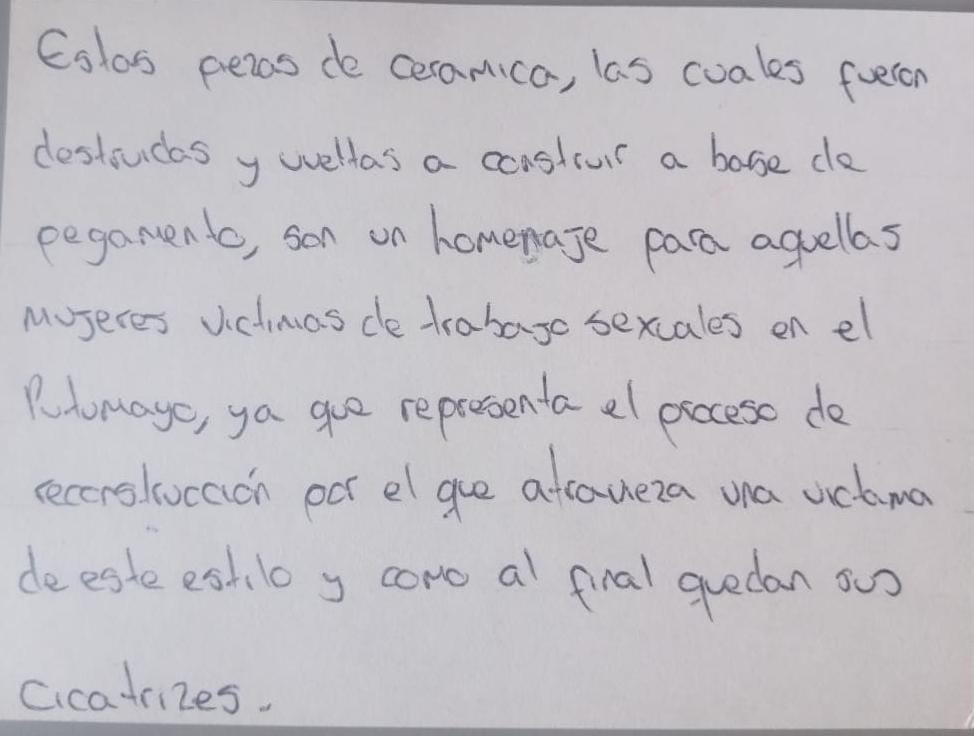 Estas piezas de ceramica, las cuales fueron
destruidas y vueltas a construir a base de
pegamento, son un homenaje para aquellas
mujeres victimas de trabajo sexuales en el
Putumayo, ya que representa el proceso de
reconstrucción por el que atravieza una victima
de este estilo y como al final quedan sus
cicatrizes.